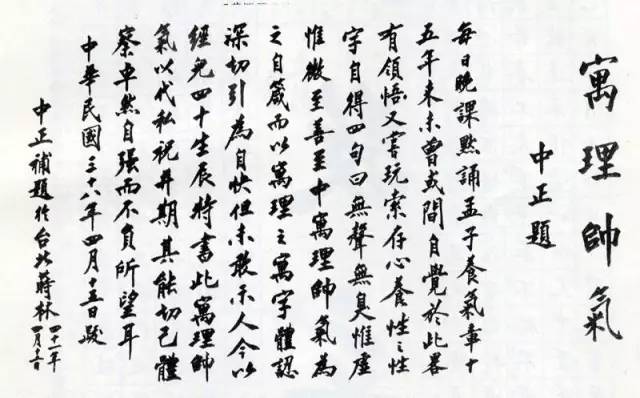 寓理帥氣
中正題
每日晚課默誦孟子養氣章十
五年來未曾或間自覺於此畧
有領悟又嘗玩索存心養性之性
字自得四句曰無聲無臭惟虛
惟微至善至中寓理帥氣為
之自箴而以寓理之寓字體認
深切引為自快但未敢示人今以
經兒四十生辰特書此寓理帥
氣以代私祝并期其能切己體
察卓然自強而不負所望耳
中華民國三十八年四月十五日跋
中正補題於台北蔣林
四十一年
四月